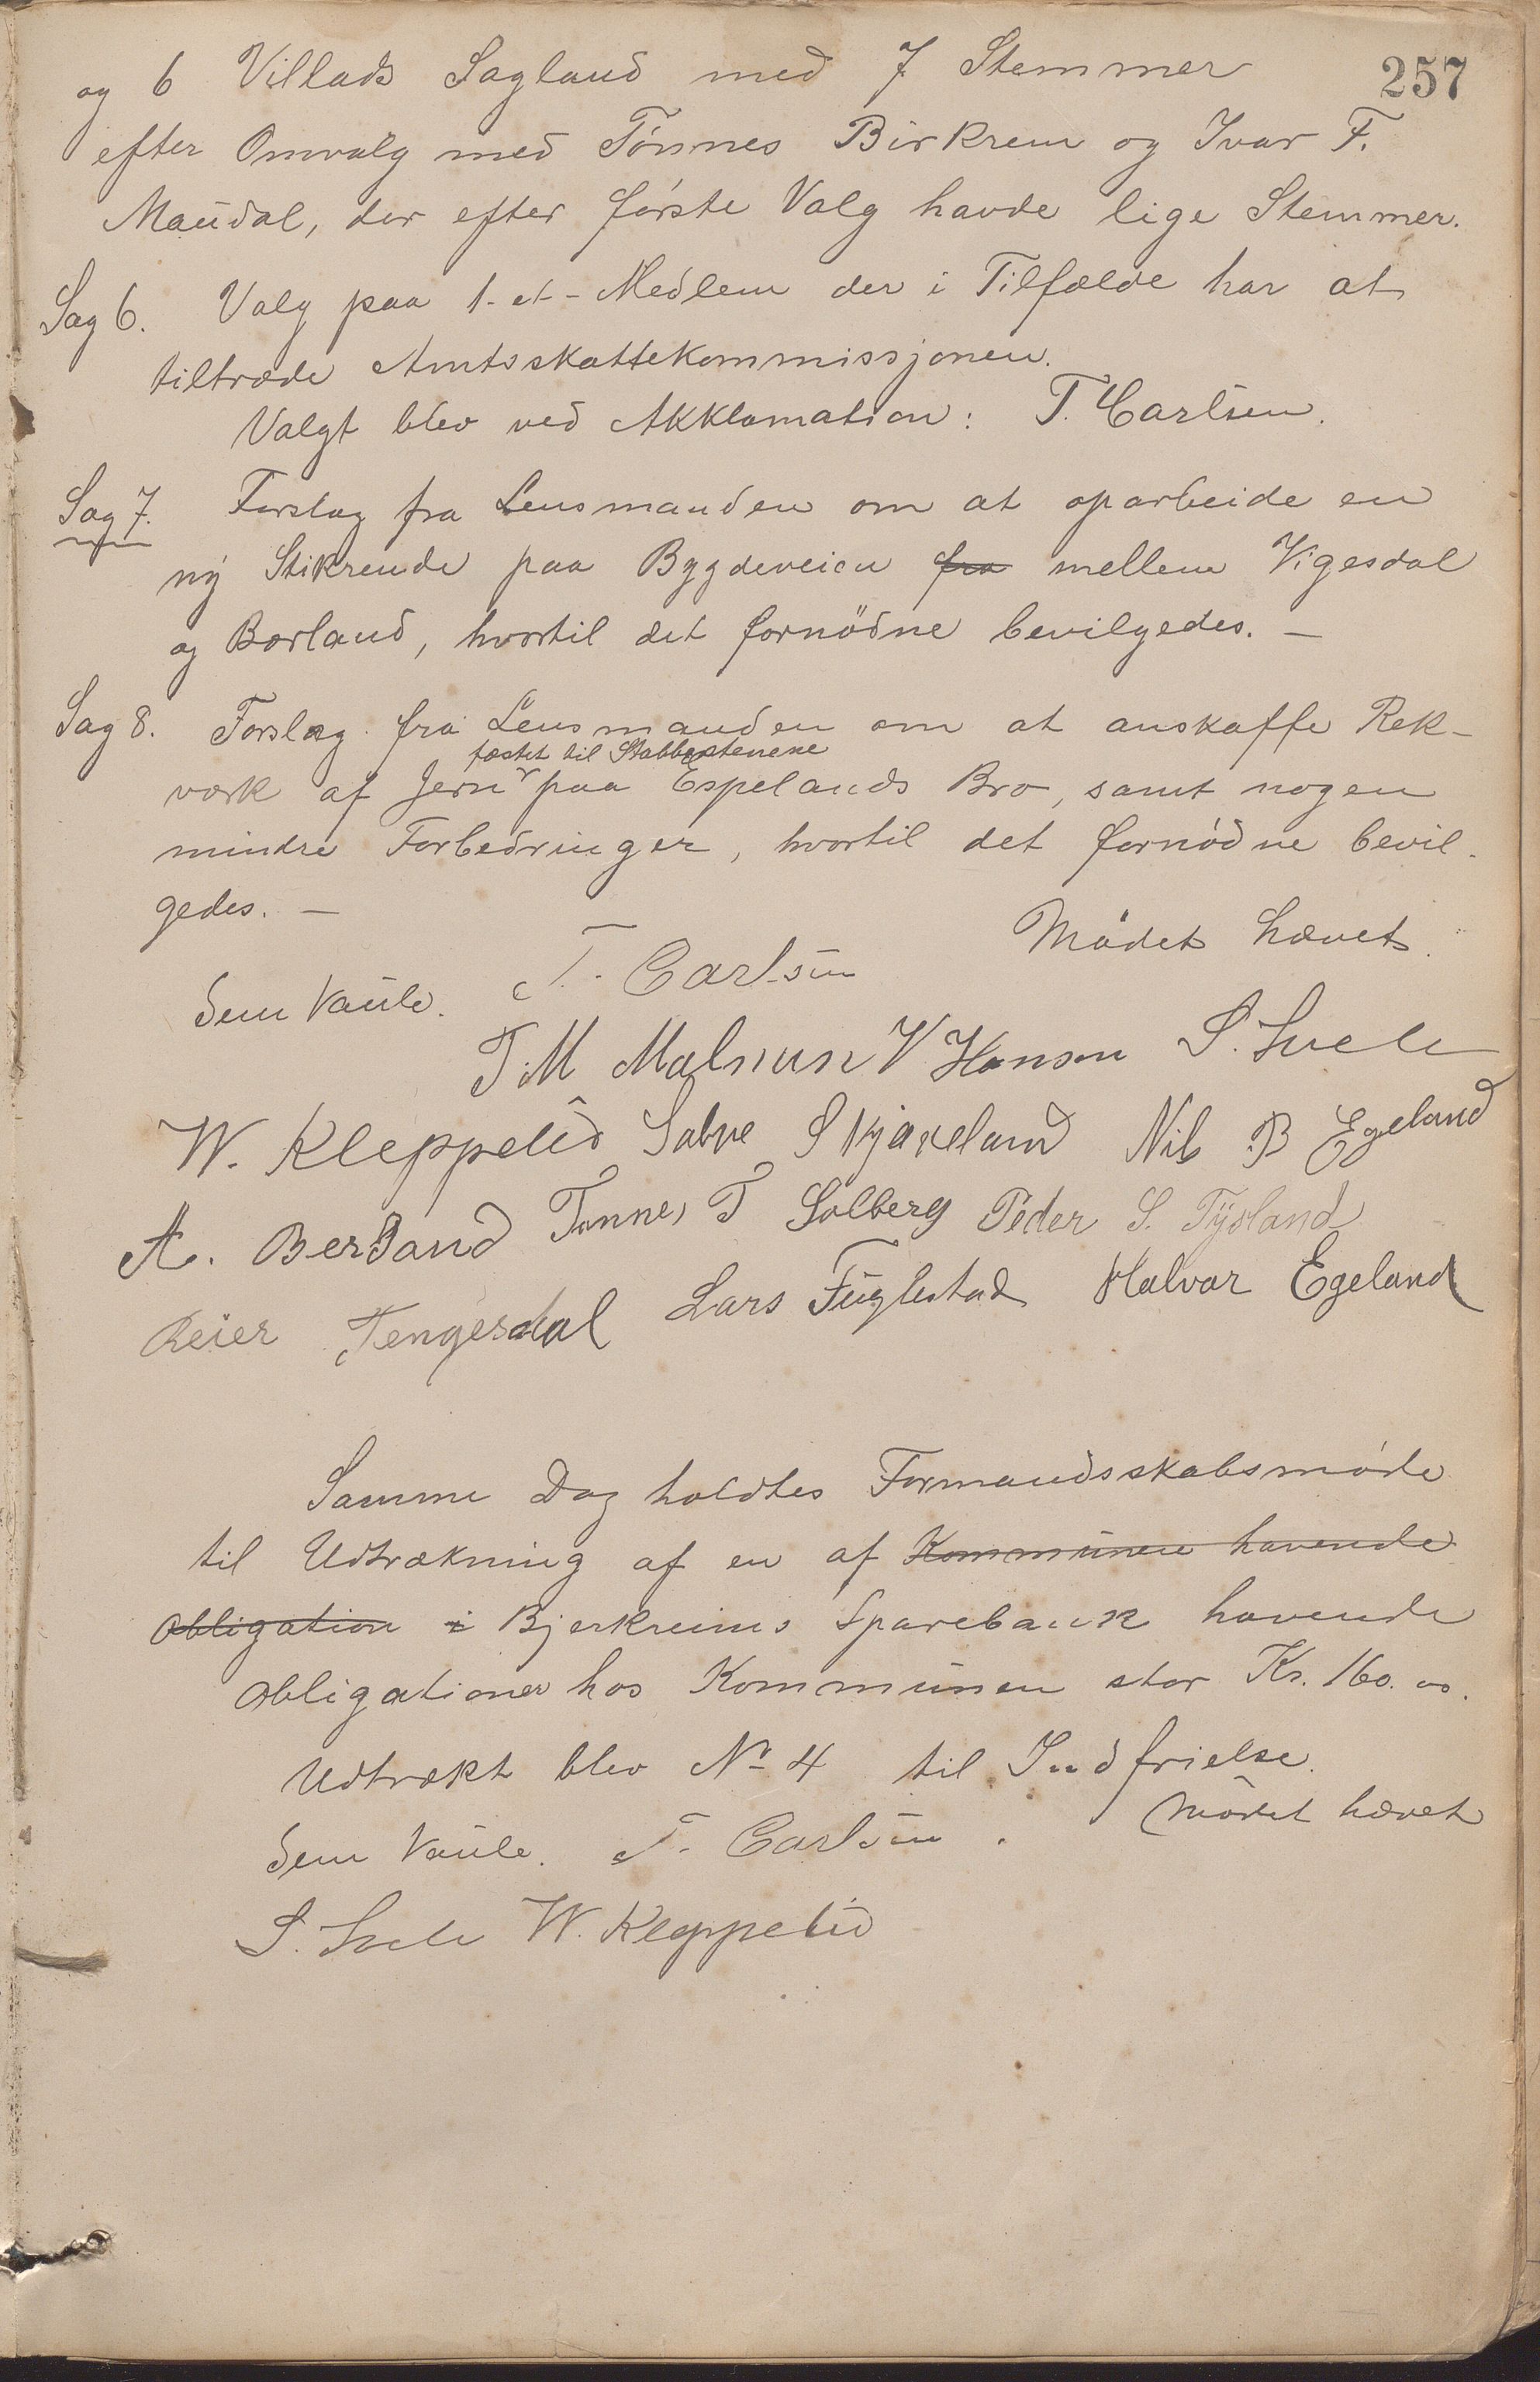 257
og 6 Villads Sagland med 7 Stemmer
efter Omvalg med Tønnes Birkrem og Ivar F.
Maudal, der efter første Valg havde lige Stemmer.
Sag 6. Valg paa 1-et-Medlem der i Tilfælde har at
tiltræde Amtsskattekommissjonen.
Valgt blev ved Akklamation: T. Carlsen.
Sag 7. Forslag fra Lensmanden om at oparbeide en
ny Stikrende paa Bygdeveien fra mellem Vigesdal
og Borland, hvortil det fornödne bevilgedes. —
Sag 8. Forslag fra Lensmanden om at anskaffe Rek-
fæstet til Stabbestenene
værk af Jern paa Espelands Bro, samt nogen
mindre Forbedringer, hvortil det fornödne bevil-
gedes. —
Mödet hævet.
Sem Vaule. T. Carlsen
T. M Malmun V Hanson S. Svele
W. Kleppelid Salve Skjæveland Nils B Egeland
A. Berland Tønnes T Solberg Peder S. Tysland
Reier Tengesdal Lars Fuglestad Halvar Egeland
Samme Dag holdtes Formandsskabsmøde
til Udtrækning af en af Kommunen havende
Obligation i Bjerkreims Sparebank havende
Obligationer hos Kommunen stor Kr. 160.00.
Udtrækt blev No 4 til Indfrielse.
Mödet hævet
Sem Vaule. T. Carlsen.
S. Svele W. Kleppelid